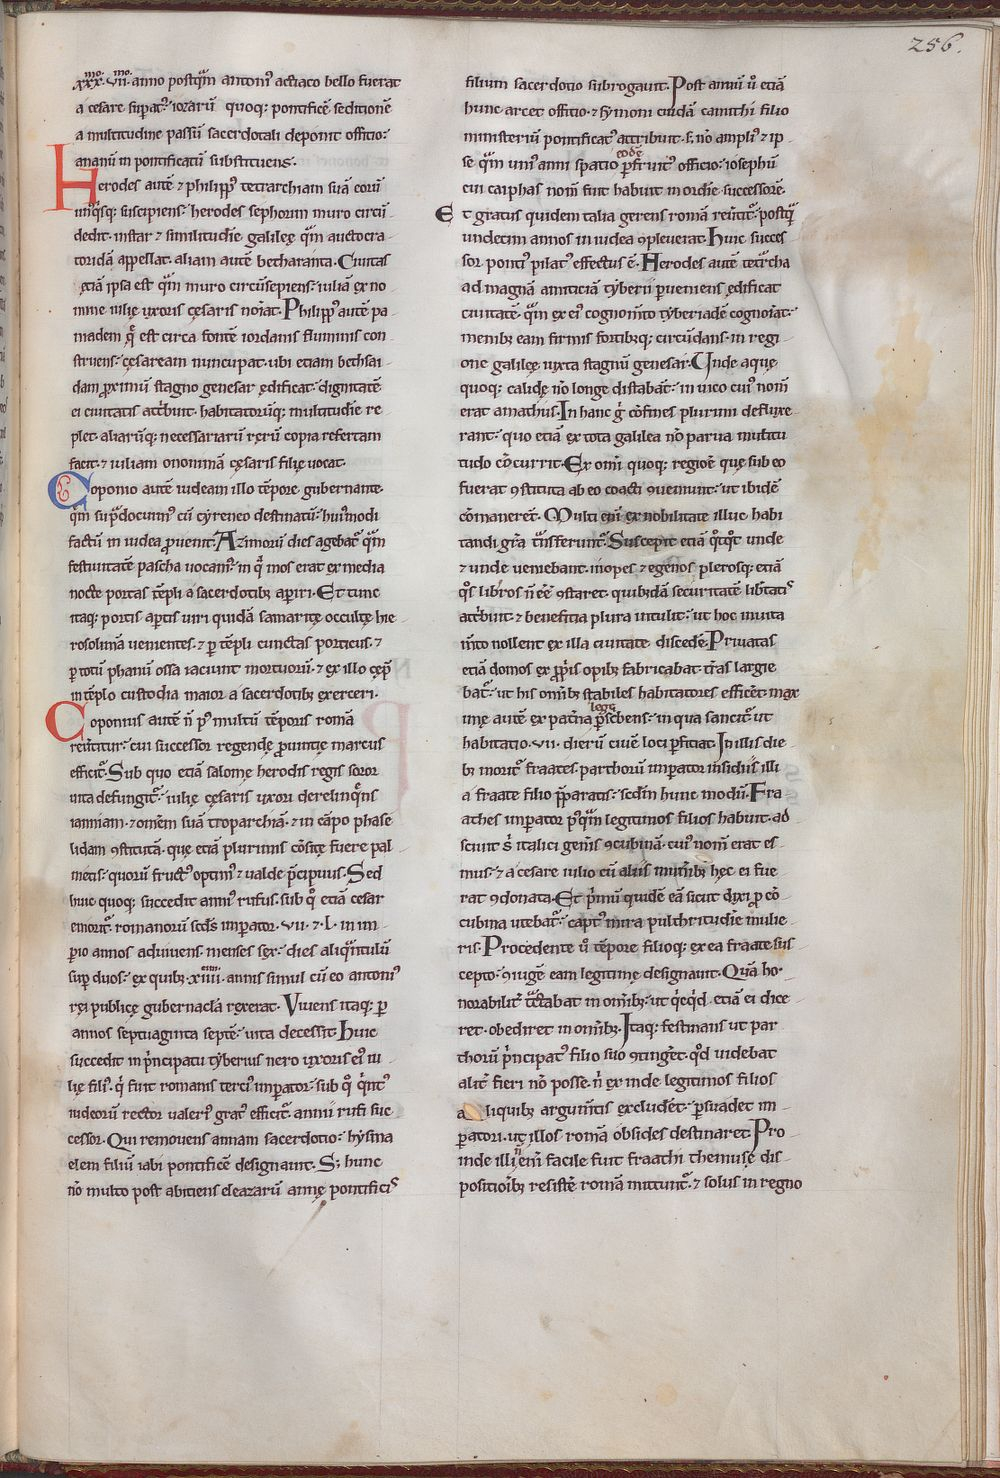 256.
xxx.mo vii.mo anno postq̃m antoni᾽ actiaco bello fuerat
a cesare supat᾽: iozarū quoq; pontificē seditionē
a multitudine passū sacerdotali deponit offitio:
ananū in pontificatū substituens.
Herodes autē ⁊ philipp᾽ tetrarchiam suā eorū
un᾽q̇sq; suscipiens: herodes sephorim muro circū-
dedit. instar ⁊ similitudīe galileę q̃m auctocra-
toridā appellat. aliam autē betharanta. Ciuitas
ętiā ipsa est q̃m muro circūsepiens: iuliā ex no-
mine iulię uxoris cęsaris noīat. Philipp᾽ autē pa-
madem q̄ est circa fontē iordanis fluminis con-
struens: cęsaream nuncupat. ubi etiam bethsai-
dam proximū stagno genesar ędificat. dignitatē
ei ciuitatis att̄buit. habitatorūq; multitudīe re-
plet. aliarūq; necessariarū rerū copia refertam
facit. ⁊ iuliam onominā cęsaris filię uocat.
Coponio autē iudeam illo tēpore gubernante.
q̄m sup̄docuim᾽ cū cyreneo destinatū: hui᾽modi
factū in iudea prouenit. Azimorū dies agebat᾽ q̃m
festiuitatē pascha uocam᾽. in q̄ mos erat ex media
nocte portas tēpli a sacerdotib; apiri. Et tunc
itaq; portis aptis uiri quidā samaritę occulte hie-
rosolimā uenientes. ⁊ p tēpli cunctas porticus. ⁊
p totū phanū ossa iaciunt mortuorū. ⁊ ex illo cęp̄
in tēplo custodia maior a sacerdotib; exerceri.
Coponius autē n̄ p᾽ multū tēporis romā
reūtitur: cui successor regendę prouintię marcus
efficit᾽. Sub quo etiā salome herodis regis soror
uita defungit᾽. iulię cęsaris uxori derelinq̄ns
ianniam. ⁊ omēm suā troparchiā. ⁊ in cāpo phase
lidam ꝯstitutā. que etiā plurimis cōsitę fuere pal-
metis: quorū fruct᾽ optim᾽ ⁊ ualde p̄cipuus. Sed
huic quoq; succedit anni᾽ rufus. sub q᾽ etiā cesar
emorit᾽. romanorū scd̄s imperator. vii. ⁊ l. in im-
perio annos adiuuens. menses sex: dies aliq̄ntulū
sup duos: ex quib; xiiii. annis simul cū eo antoni᾽
rei publicę gubernacla rexerat. Viuens itaq; p
annos septuaginta septē: uita decessit. Huic
succedit in p̄ncipatu tyberius nero uxoris ei᾽ iu-
lię fili᾽. q̇ fuit romanis terci᾽ imperator: sub q᾽ q̇nt᾽
iudeorū rector valeri᾽ grat᾽ efficit᾽. annii rufi suc-
cessor. Qui remouens annam sacerdotio: hysma
elem filiū iabi pontificē designauit. S; hunc
nō multo post abitiens eleazarū annę pontifici᾽
filium sacerdotio subrogauit. Post annū ū etiā
hunc arcet offitio. ⁊ symoni cuidā camithi filio
ministeriū pontificat᾽ attribuit. s; nō ampli᾽ ⁊ ip-
se q̃m uni᾽ anni spatio eodē pfruit᾽ officio: iosephū
cui caiphas nom̄ fuit habuit in ordīe successorē.
Et gratus quidem talia gerens romā reūtit᾽. postq̃
undecim annos in iudea ꝯpleuerat. Huic succes-
sor ponti᾽ pilat᾽ effectus ē. Herodes autē tetrarcha
ad magnā amiticiā tyberii pueniens ędificat
ciuitatē. q̃m ex ei᾽ cognom̄to tyberiadē cognoīat.
menib; eam firmis fortibq; circūdans. in regi-
one galilęę iuxta stagnū genesar. Unde aque
quoq; calidę nō longe distabāt: in uico cui᾽ nom̄
erat amathus. In hanc g̊ cōfines plurimi defluxe-
rant. quo etiā ex tota galilea nō parua multitu-
tudo cōcurrit. Ex omi quoq; regiōe que sub eo
fuerat ꝯstituta ab eo coacti ꝯueniunt: ut ibidē
cōmanerēt. Multi enī ex nobilitate illuc habi-
tandi gr̄a t̃nsferunt᾽. Suscepit etiā q᾽tq᾽t unde
⁊ unde ueniebant. inopes ⁊ egenos plerosq; etiā
q᾽s libros n̄ eē ꝯstaret. quibdā securitatē lib̄tati᾽
att̄buit. ⁊ benefitia plura intulit: ut hoc inuita
m̄to nollent ex illa ciuitate discedē. Priuatas
etiā domos ex propriis opib; fabricabat. t̄ras largie-
bat᾽. ut his omib; stabiles habitatores efficēt. max
ime autē ex pat̄na lege p̄scbens: in qua sancit᾽ ut
habitatio. vii. dierū ciuē loci pficiat. In illis die-
b; morit᾽ fraates. parthorū imperator insidiis illi
a fraate filio p̄paratis: sed in hunc modū. Fra-
athes imperator p᾽q̃m legitimos filios habuit. ad-
sciuit s᾽ italici gen̄is ꝯcubinā. cui᾽ nom̄ erat es-
mus: ⁊ a cesare iulio cū aliis munib; hęc ei fue-
rat ꝯdonata. Et p̄mū quidē eā sicut dixi pro cō-
cubina utebat᾽. capt᾽ mira pulchritudīe mulie-
ris. Procedente ū tēpore filioq; ex ea fraate sus-
cepto: ꝯiugē eam legitimę designauit. Quā ho-
norabilit᾽ t̃ctabat in omib;: ut q̇cq̇d etiā ei dice-
ret. obediret in omib;. Itaq; festinans ut par-
thorū p̄ncipat᾽ filio suo ꝯtingēt. q᾽d uidebat
alit᾽ fieri nō posse. n᾽ ex inde legitimos filios
aliquib; argum̄tis excludēt: psuadet im-
peratori. ut illos romā obsides destinaret. Pro-
inde illi n̄ enī facile fuit fraathi themuse dis-
positioib; resistē romā mittunt᾽. ⁊ solus in regno